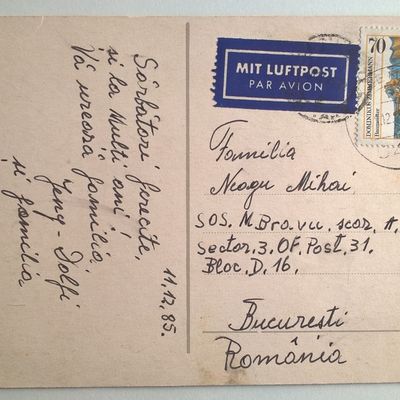 Sărbători fericite,
si la Multi ani!
Vă urează familia
Jeny-Dolfi
si familia
11.12.85.
MIT LUFTPOST
PAR AVION
70
DOMINIKUS ZIMMERMANN
Familia
Neagu Mihai
SOS. M. Bravu, scar, A.
Sector, 3. OF. Post, 31.
Bloc, D, 16.
Bucuresti
România